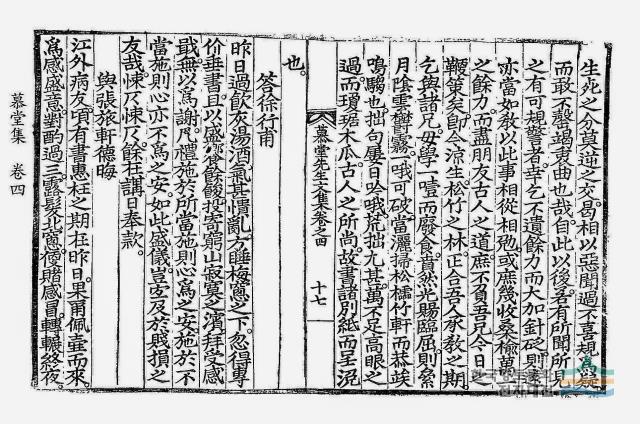 生死之分莫逆之交曷相以惡聞過不喜規爲疑
而敢不罄竭衷曲也哉自此以後若有所聞所見
之有可規警者幸乞不遺餘力而大加針砭則
亦當如敎以此事相從相勉或庶幾收桑榆萬
之餘力而盡朋友古人之道庶不負吾兄今日之
鞭策矣卽今凉生松竹之林正合吾人承敎之期
乞與諸兄毋學一噎而廢食賁然光賜臨屈則
月陰雲欝霧一哦可破當灑掃松竹軒而恭竢
鳴騶也拙句屢日吟哦荒拙尤甚萬不足高眼之
過而瓊琚木瓜古人之所尙故書諸別紙而呈浼
也
慕堂先生文集卷之四 十七
答徐行甫
昨日過飮灰湯酒氣甚憒亂方睡梅窓之下忽得專
价垂書且以盛餐餘餕投寄窮山寂寞之濱拜掌感
戢無以爲謝凡禮施於所當施則心爲之安施於不
當施則心亦不爲之安如此盛儀豈宜及於賤損之
友哉悚仄悚仄餘在謹日奉款
與張旅軒德晦
江外病友頃有書惠枉之期在昨日果甫佩壺而來
爲感盛意對酌過三露髮北窓偃感冒轉輾終夜
慕堂集 卷四